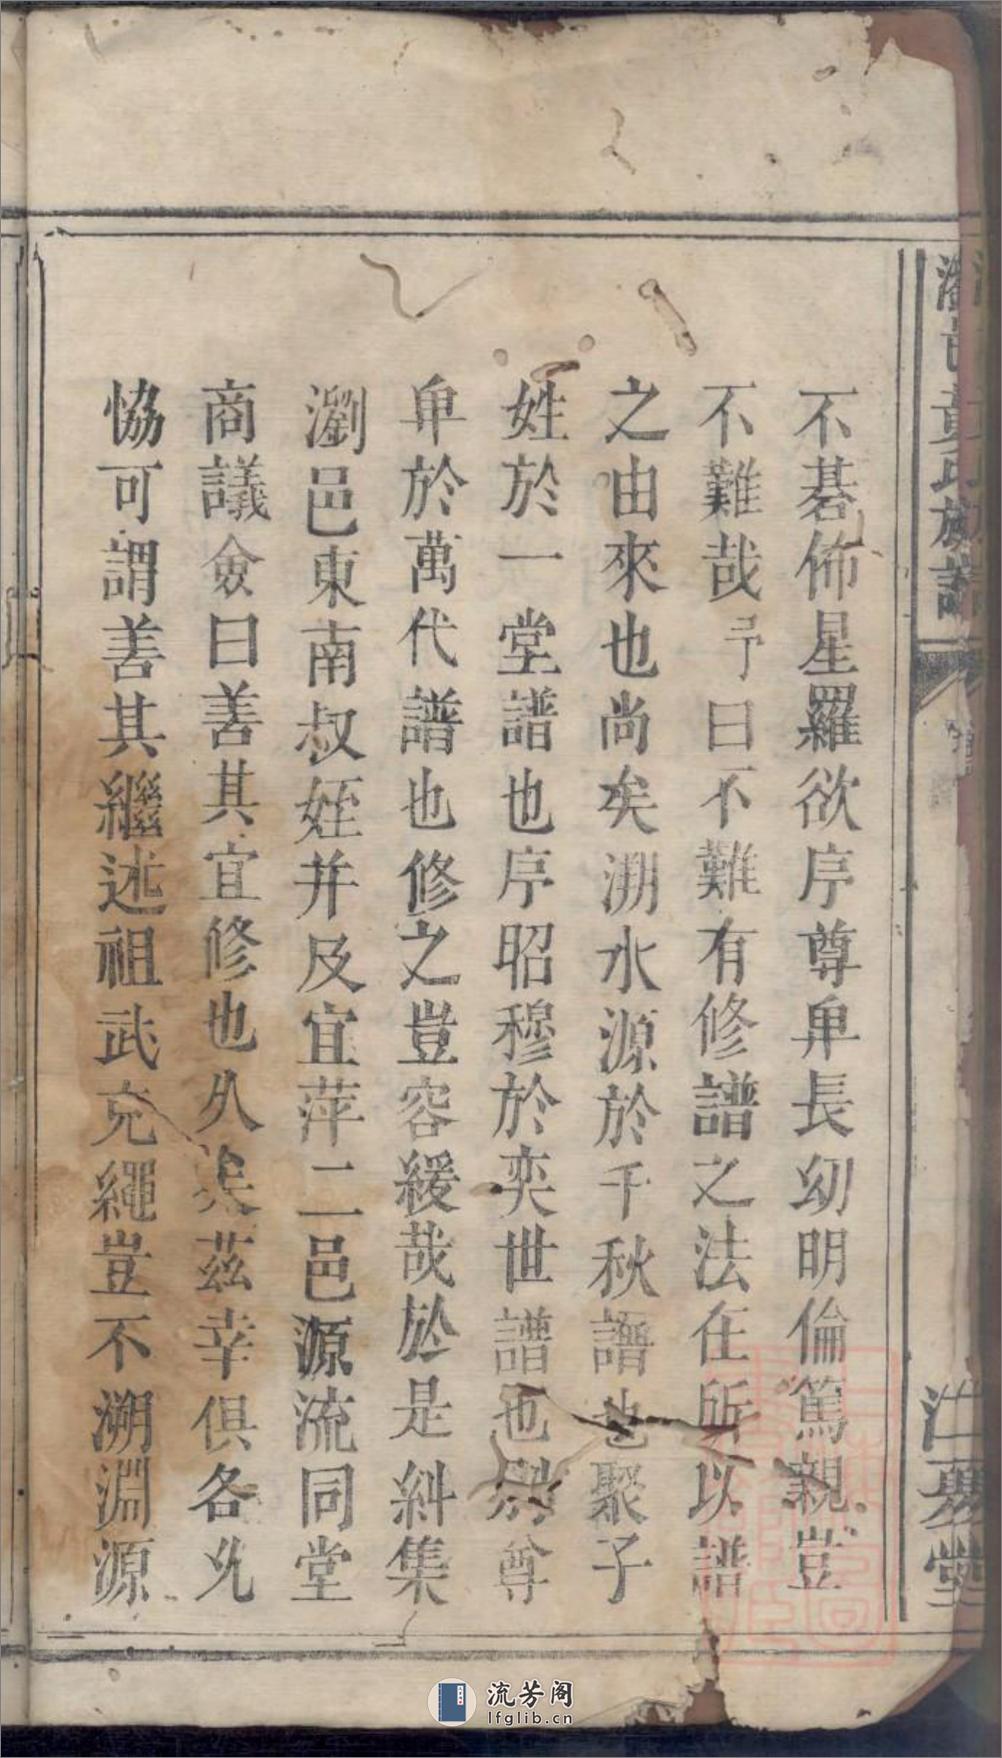 瀏邑黄氏族譜
江夏堂
不碁佈星羅欲序尊卑長幼明倫篤親豈
不難哉予曰不難有修譜之法在所以譜
之由來也尚矣溯水源於千秋譜也聚子
姓於一堂譜也序昭穆於奕世譜也別尊
卑於萬代譜也修之豈容緩哉於是糾集
瀏邑東南叔姪并及宜萍二邑源流同堂
商議僉曰善其宜修也久矣茲幸俱各允
恊可謂善其繼述祖武克繩豈不溯淵源
流芳阁
lfglib.cn